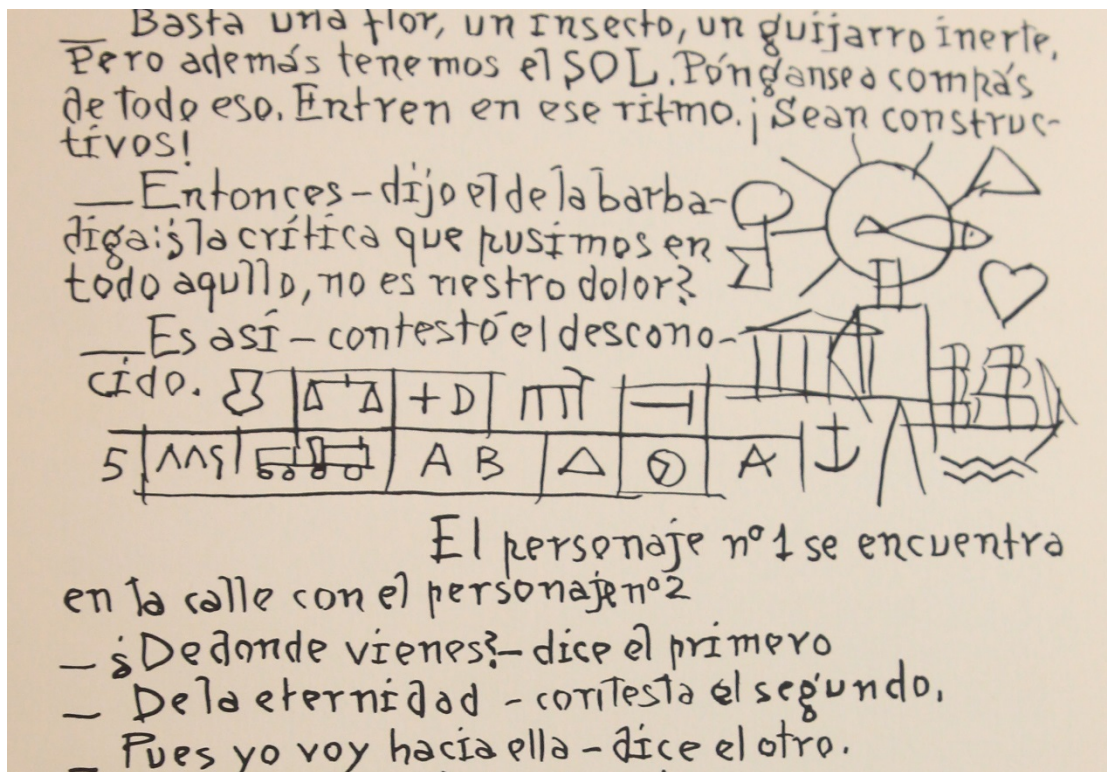 __ Basta una flor, un insecto, un guijarro inerte.
Pero además tenemos el SOL. Pónganse a compás
de todo eso. Entren en ese ritmo. ¡Sean construc-
tivos!
__ Entonces - dijo el de la barba-
diga: ¿la crítica que pusimos en
todo aqullo, no es nestro dolor?
__ Es así - contestó el descono-
cido.
+ D
5 A B A
El personaje nº 1 se encuentra
en la calle con el personaje nº 2
__ ¿De donde vienes? - dice el primero
__ De la eternidad - contesta el segundo.
__ Pues yo voy hacia ella - dice el otro.